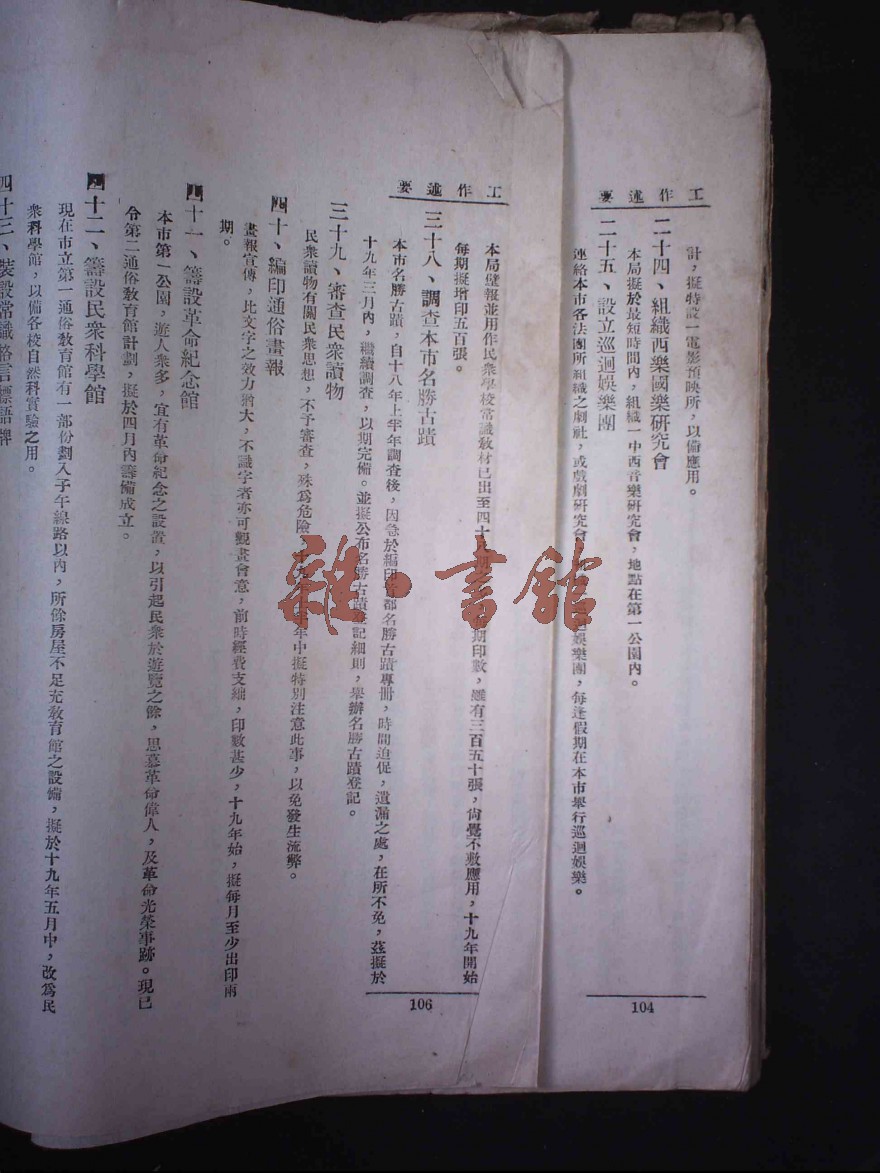 工作述要
計，擬特設一電影預映所，以備應用。
二十四、組織西樂國樂研究會
本局擬於最短時間內，組織一中西音樂研究會，地點在第一公園內。
二十五、設立巡迴娛樂團
連絡本市各法團所組織之劇社，或戲劇研究會，娛樂團，每逢假期在本市舉行巡迴娛樂。
104
工作述要
本局壁報並用作民衆學校常識教材已出至四十九期，期印數，雖有三百五十張，尙覺不敷應用，十九年開始
每期擬增印五百張。
三十八、調查本市名勝古蹟
本市名勝古蹟，自十八年上半年調查後，因急於編印首都名勝古蹟專冊，時間迫促，遺漏之處，在所不免，茲擬於
十九年三月內，繼續調查，以期完備。並擬公布名勝古蹟登記細則，舉辦名勝古蹟登記。
三十九、審查民衆讀物
民衆讀物有關民衆思想，不予審查，殊爲危險，年中擬特別注意此事，以免發生流弊。
四十、編印通俗畫報
畫報宣傳，比文字之效力猶大，不識字者亦可觀畫會意，前時經費支絀，印數甚少，十九年始，擬每月至少出印兩
期。
四十一、籌設革命紀念館
本市第一公園，遊人衆多，宜有革命紀念之設置，以引起民衆於遊覽之餘，思慕革命偉人，及革命光榮事跡。現已
令第二通俗教育館計劃，擬於四月內籌備成立。
四十二、籌設民衆科學館
現在市立第一通俗教育館有一部份劃入子午線路以內，所餘房屋不足充教育館之設備，擬於十九年五月中，改爲民
衆科學館，以備各校自然科實驗之用。
四十三、裝設常識格言標語牌
106
雜·書館